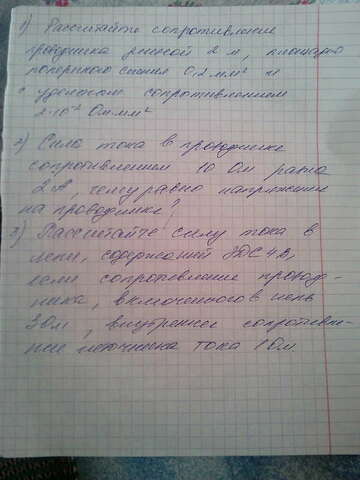 1) Рассчитайте сопротивление
проводника длиной 2 м, площадью
поперечного сечения 0,2 мм² и
с удельным сопротивлением
2·10⁻² Ом·мм²
2) Сила тока в проводнике
сопротивлением 10 Ом равна
2 А, чему равно напряжение
на проводнике?
3) Рассчитайте силу тока в
цепи, содержащей ЭДС 4В,
если сопротивление провод-
ника, включенного в цепь
3 Ом, внутреннее сопротивле-
ние источника тока 1 Ом